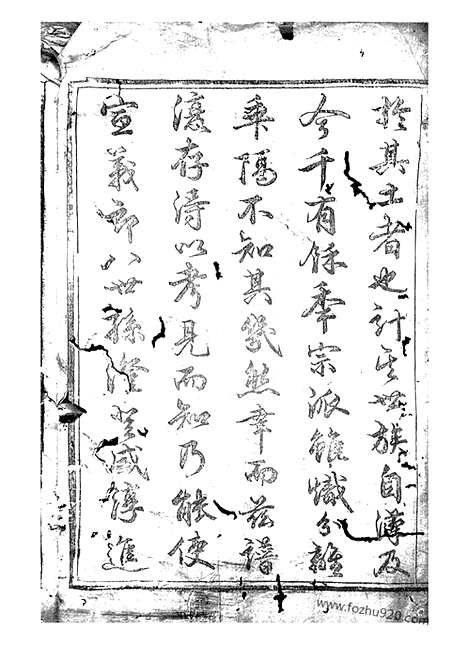 於其土者也計其世族自漢及
今千有餘年宗派雖熾分雖
乘隔不知其幾然幸而茲譜
復存得以考見而知乃能使
宣義郎八世孫澄登咸淳進
www.fozhu920.com